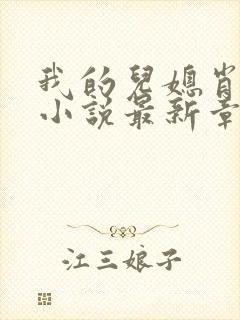 我的兒媳肖
小说最新章
江三娘子